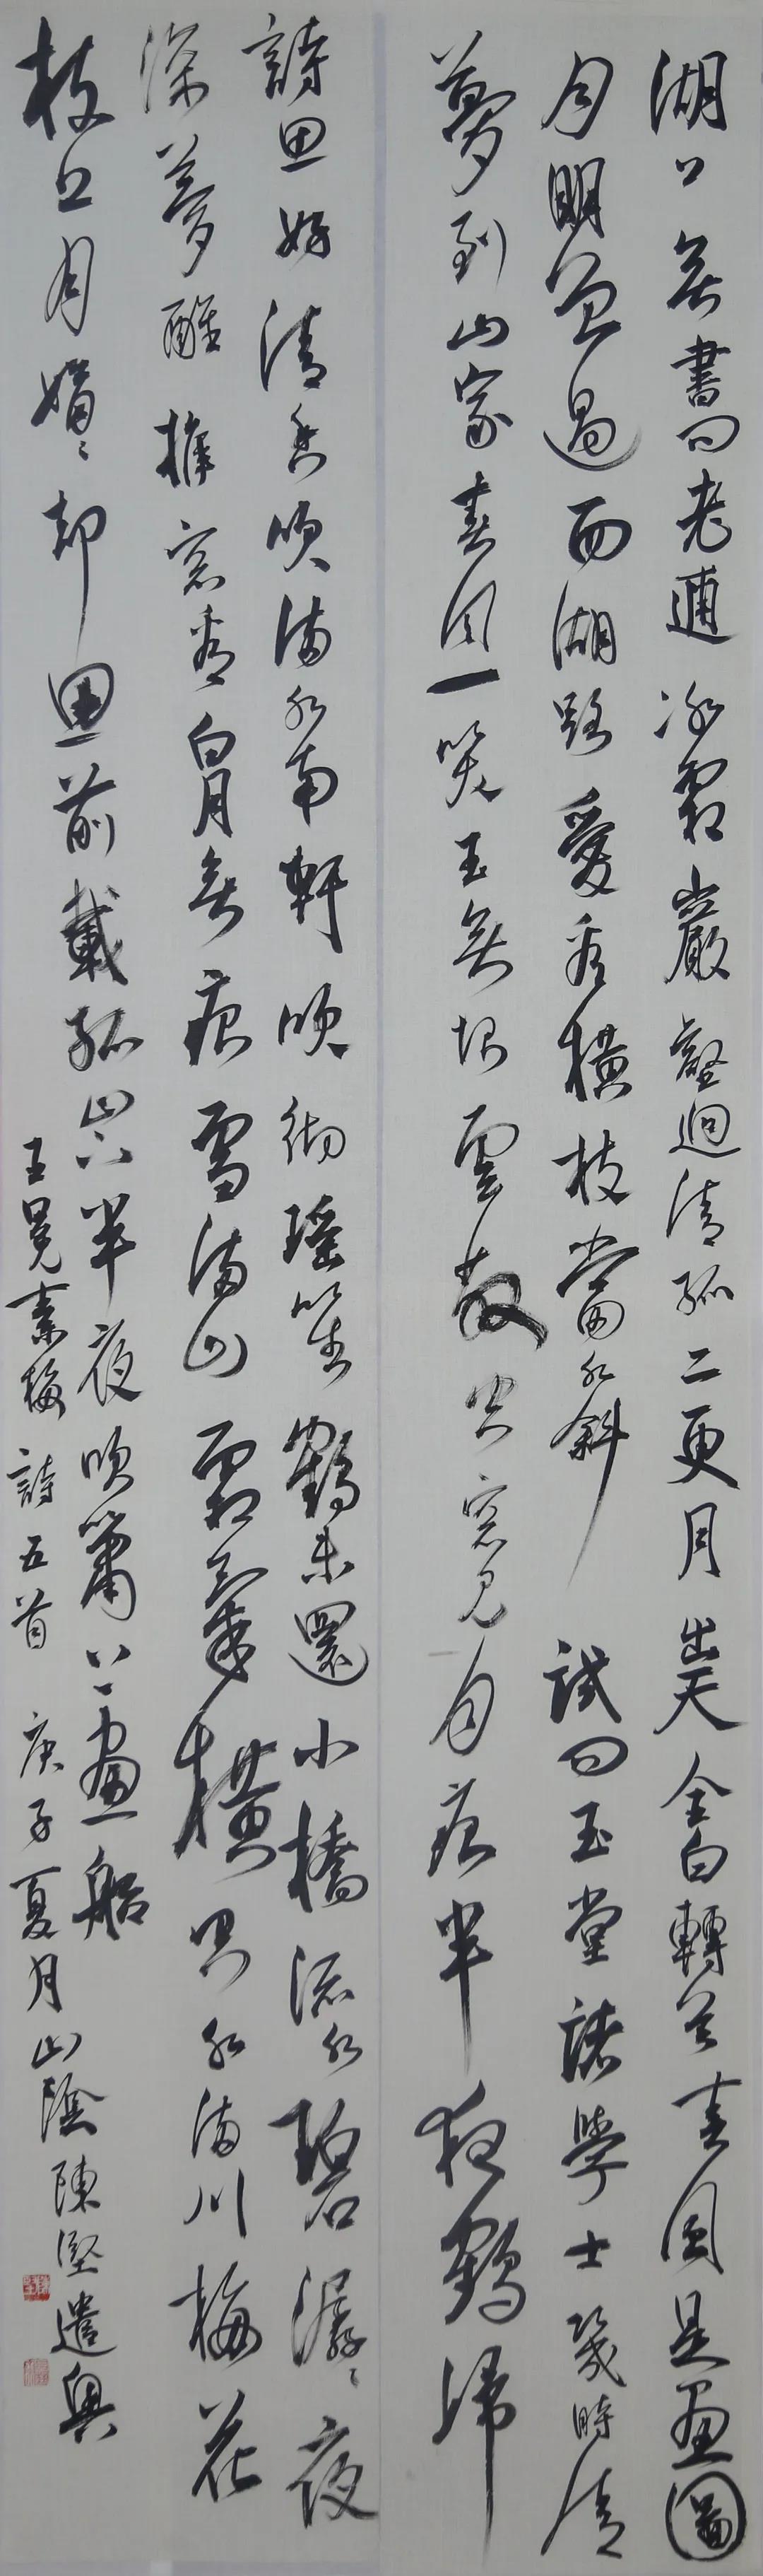 湖上無書問老逋冰霜巖壑迥清孤二更月出天全白轉首春風是畫圖
月明曾過西湖路愛看橫枝當水斜試問玉堂諸學士幾時清
夢到山家春風一笑玉無垠雲散空窗見月痕半夜鶴歸
詩思好清香吹滿水南軒吹徹瑤笙鶴未還小橋流水碧潺〻夜
深夢醒推窗看白月無痕雪滿山霜氣橫空水滿川梅花
枝上月娟〻却思前載孤山下半夜吹簫上畫船
王冕素梅詩五首庚子夏月山陰陳堅遣興